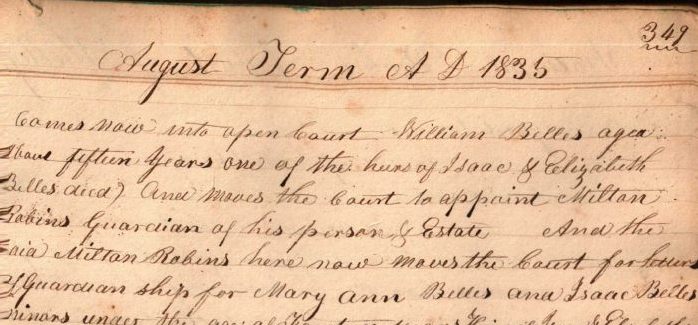 349
August Term A D 1835
Comes now into open Court William Belles aged
above fifteen years one of the heirs of Isaac & Elizabeth
Belles died) And moves the Court to appoint Milton
Robins Guardian of his person & Estate And the
said Milton Robins here now moves the Court for letters
of Guardian ship for Mary Ann Belles and Isaac Belles
minors under the